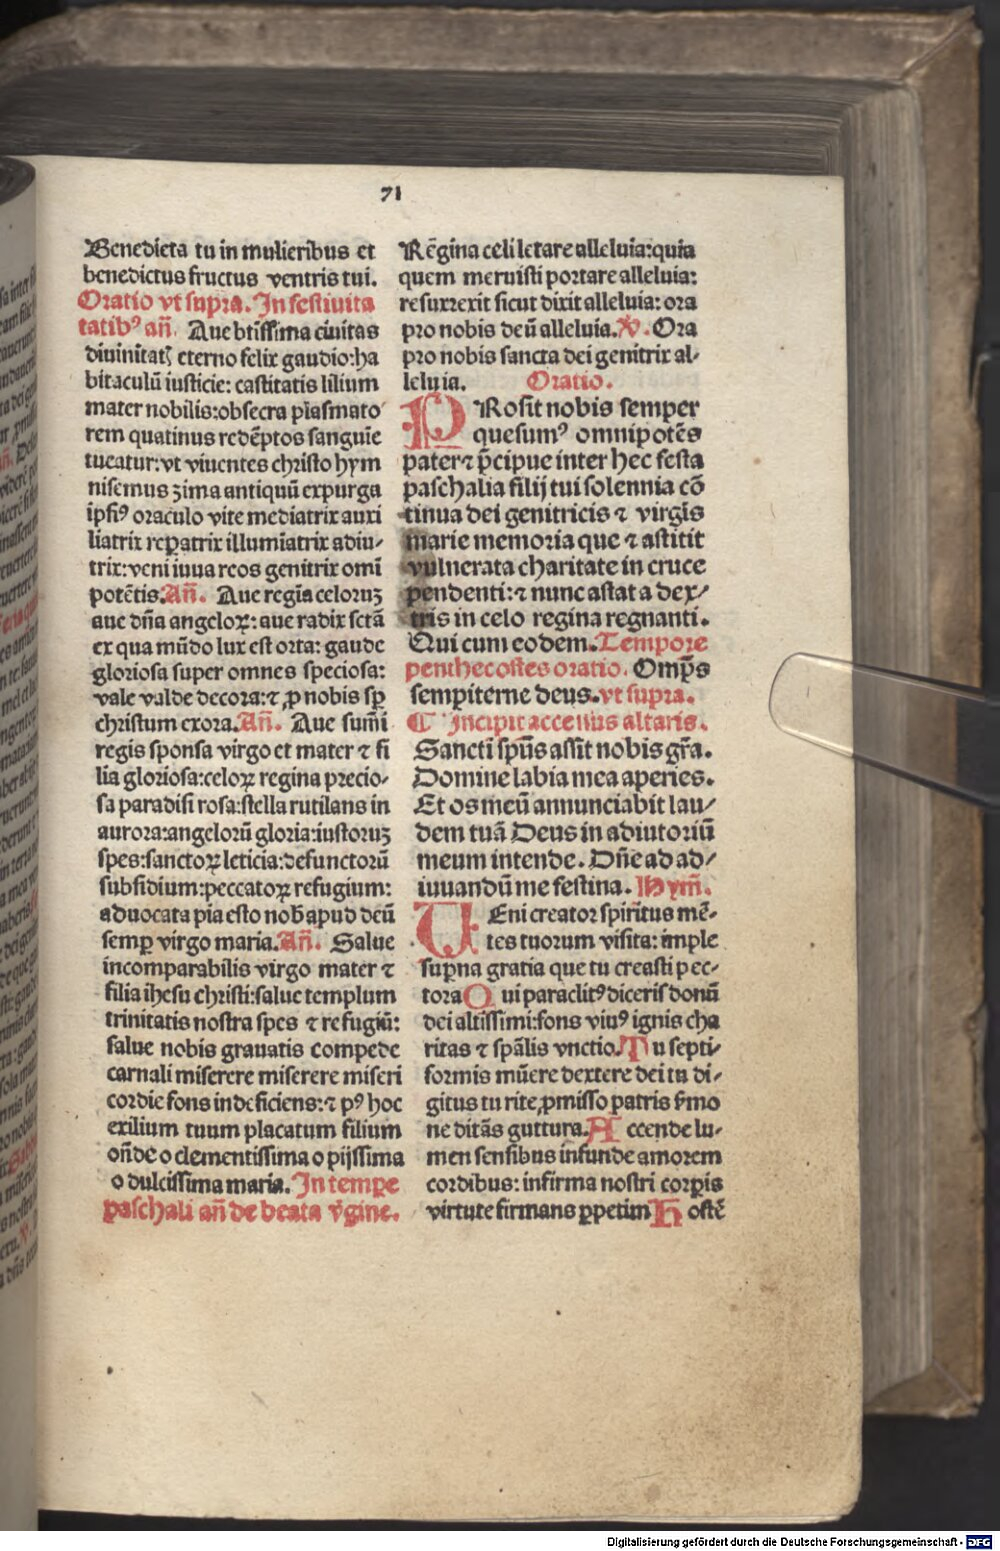 71
Benedicta tu in mulieribus et
benedictus fructus ventris tui.
Oratio vt supra. In festiuita
tatibꝰ añ. Aue btissima ciuitas
diuinitatꝭ eterno felix gaudio:ha
bitaculū iusticie: castitatis lilium
mater nobilis:obsecra plasmato
rem quatinus redēptos sanguīe
tueatur:vt viuentes christo hym
nisemus zima antiquū expurga
ipsiꝰ oraculo vite mediatrix auxi
liatrix reꝑatrix illumīatrix adiu⸗
trix:veni iuua reos genitrix omī
potētis. Añ. Aue regīa celoruꝫ
aue dña angeloꝝ: aue radix sctā
ex qua mūdo lux est orta: gaude
gloriosa super omnes speciosa:
vale valde decora:⁊ ꝓ nobis sꝑ
christum exora. Añ. Aue sum̄i
regis sponsa virgo et mater ⁊ fi
lia gloriosa:celoꝝ regina precio⸗
sa paradisi rosa:stella rutilans in
aurora:angelorū gloria:iustoruꝫ
spes:sanctoꝝ leticia:defunctorū
subsidium:peccatoꝝ refugium:
aduocata pia esto nob̄ apud deū
semꝑ virgo maria. Añ. Salue
incomparabilis virgo mater ⁊
filia ihesu christi:salue templum
trinitatis nostra spes ⁊ refugiū:
salue nobis grauatis compede
carnali miserere miserere miseri
cordie fons indeficiens:⁊ pꝰ hoc
exilium tuum placatum filium
oñde o clementissima o pijssima
o dulcissima maria. In tempe
paschali añ de beata v̄gine.
Rēgina celi letare alleluia:quia
quem meruisti portare alleluia:
resurrexit sicut dixit alleluia: ora
pro nobis deū alleluia. ℣. Ora
pro nobis sancta dei genitrix al⸗
leluia. Oratio.
PRosit nobis semper
quesumꝰ omnipotēs
pater⁊ p̄cipue inter hec festa
paschalia filij tui solennia cō
tinua dei genitricis ⁊ virgīs
marie memoria que ⁊ astitit
vulnerata charitate in cruce
pendenti:⁊ nunc astat a dex⸗
tris in celo regina regnanti.
Qui cum eodem. Tempore
penthecostes oratio. Omp̄s
sempiterne deus. vt supra.
¶ Incipit accessus altaris.
Sancti spūs assit nobis gr̄a.
Domine labia mea aperies.
Et os meū annunciabit lau⸗
dem tuā Deus in adiutoriū
meum intende. Dñe ad ad⸗
iuuandū me festina. Hym̄.
VEni creator spiritus mē⸗
tes tuorum visita: imple
suꝑna gratia que tu creasti pec⸗
tora Qui paraclitꝰ diceris donū
dei altissimi:fons viuꝰ ignis cha
ritas ⁊ spālis vnctio. Tu septi⸗
formis mūere dextere dei tu di⸗
gitus tu rite ꝓmisso patris ẜmo
ne ditās guttura. Accende lu⸗
men sensibus infunde amorem
cordibus: infirma nostri corꝑis
virtute firmans ꝑpetim Hostē
Digitalisierung gefördert durch die Deutsche Forschungsgemeinschaft - DFG